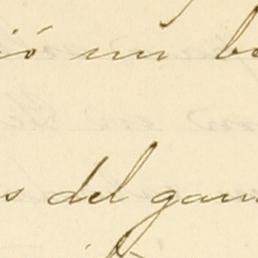 ió un b
s del gan